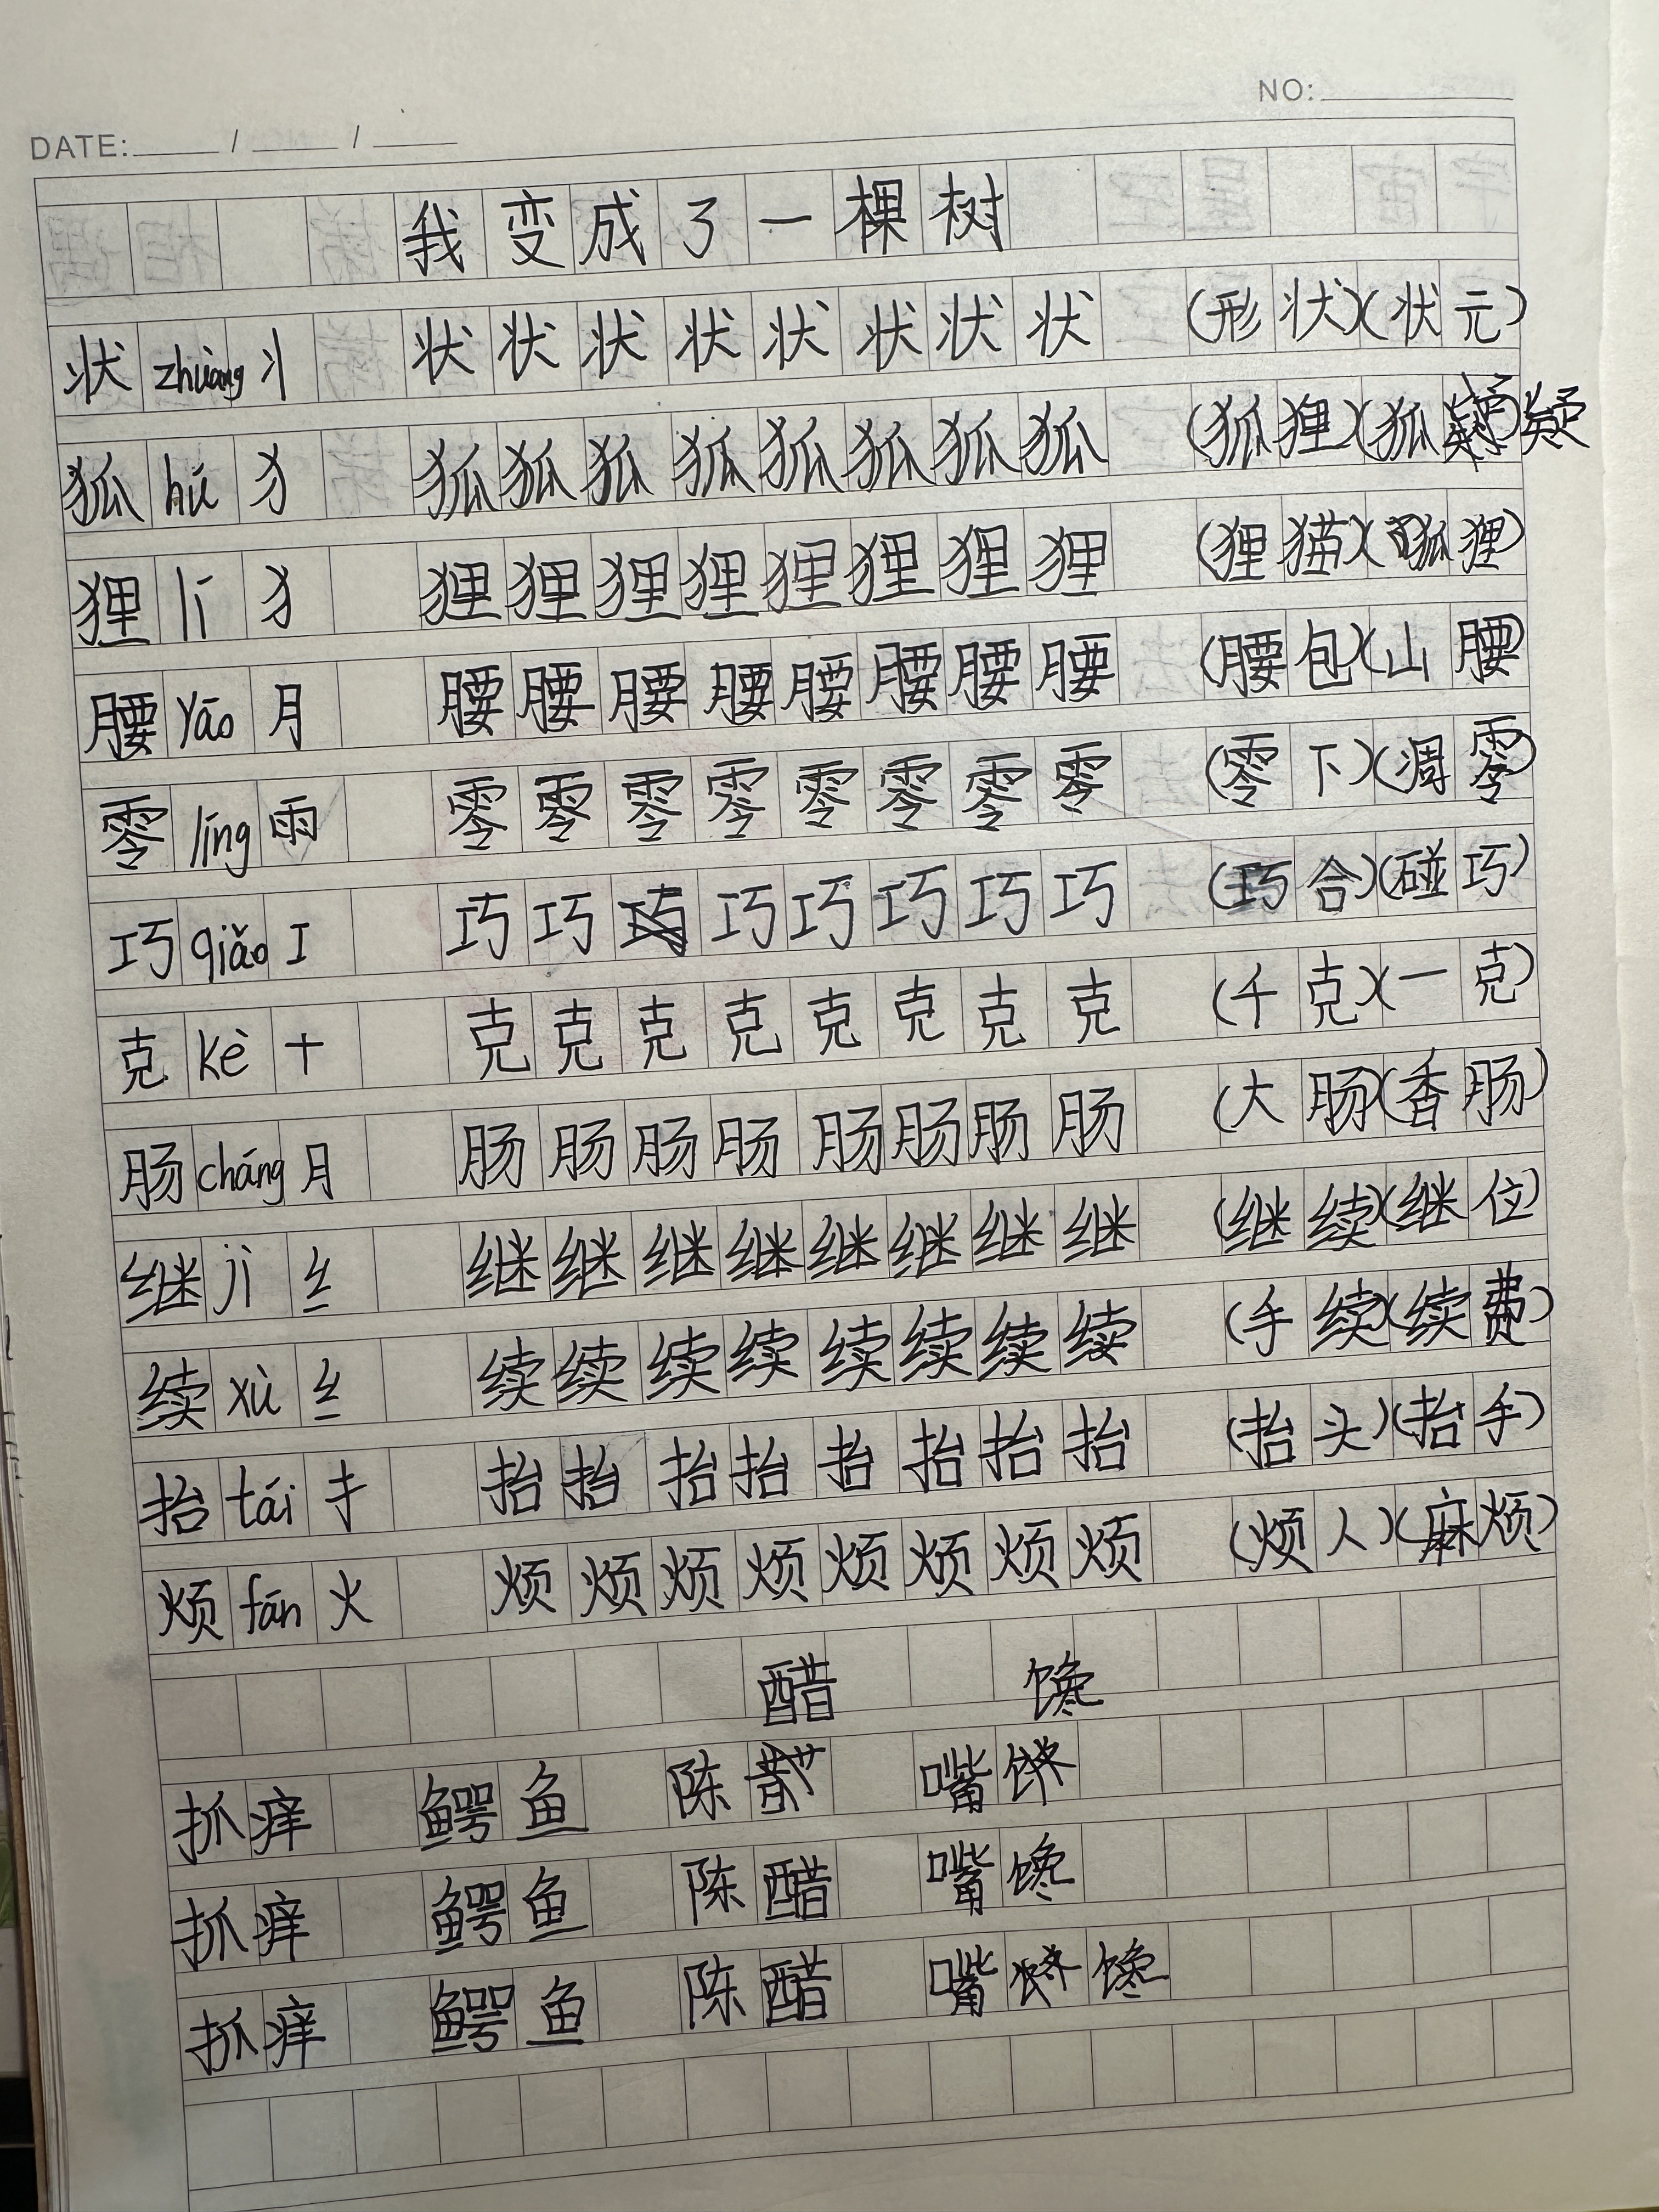 NO:
DATE: / /
我变成了一棵树
状 zhuàng 丬 状状状状状状状状 (形状)(状元)
狐 hú 犭 狐狐狐狐狐狐狐狐 (狐狸)(狐疑)
狸 lí 犭 狸狸狸狸狸狸狸狸 (狸猫)(狐狸)
腰 yāo 月 腰腰腰腰腰腰腰腰 (腰包)(山腰)
零 líng 雨 零零零零零零零零 (零下)(凋零)
巧 qiǎo 工 巧巧巧巧巧巧巧 (巧合)(碰巧)
克 kè 十 克克克克克克克克 (千克)(一克)
肠 cháng 月 肠肠肠肠肠肠肠肠 (大肠)(香肠)
继 jì 纟 继继继继继继继继 (继续)(继位)
续 xù 纟 续续续续续续续续 (手续)(续费)
抬 tái 扌 抬抬抬抬抬抬抬抬 (抬头)(抬手)
烦 fán 火 烦烦烦烦烦烦烦烦 (烦人)(麻烦)
醋 馋
抓痒 鳄鱼 陈 嘴
抓痒 鳄鱼 陈醋 嘴馋
抓痒 鳄鱼 陈醋 嘴馋